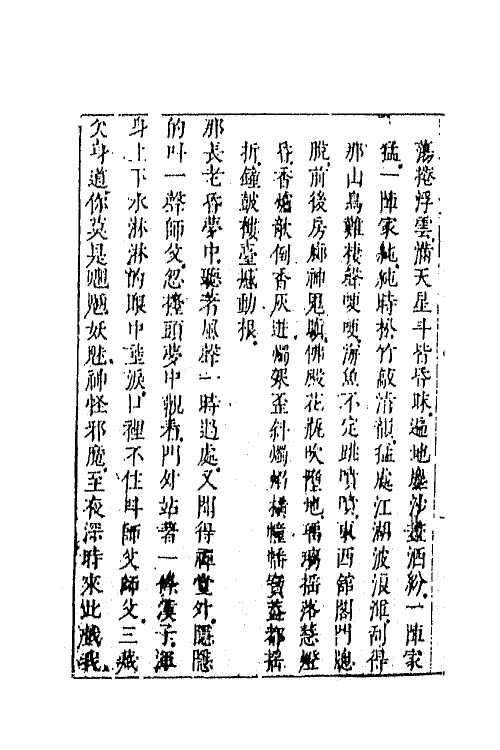 蕩捲浮雲滿天星斗皆昏昧遍地塵沙盡洒紛一陣家
猛一陣家純純時松竹敲清韻猛處江湖波浪渾刮得
那山鳥難棲聲哽哽海魚不定跳噴噴東西館閣門牕
脫前後房廊神鬼瞋佛殿花瓶吹墮地琉璃搖落慧燈
昏香爐敧倒香灰迸燭架歪斜燭焰橫幢幡寶蓋都搖
折鐘鼓樓臺撼動根
那長老昏夢中聽著風聲一時過處又聞得禪堂外隱隱
的叫一聲師父忽擡頭夢中觀看門外站著一條漢子渾
身上下水淋淋的眼中垂淚口裡不住叫師父師父三藏
欠身道你莫是魍魎妖魅神怪邪魔至夜深時來此戲我